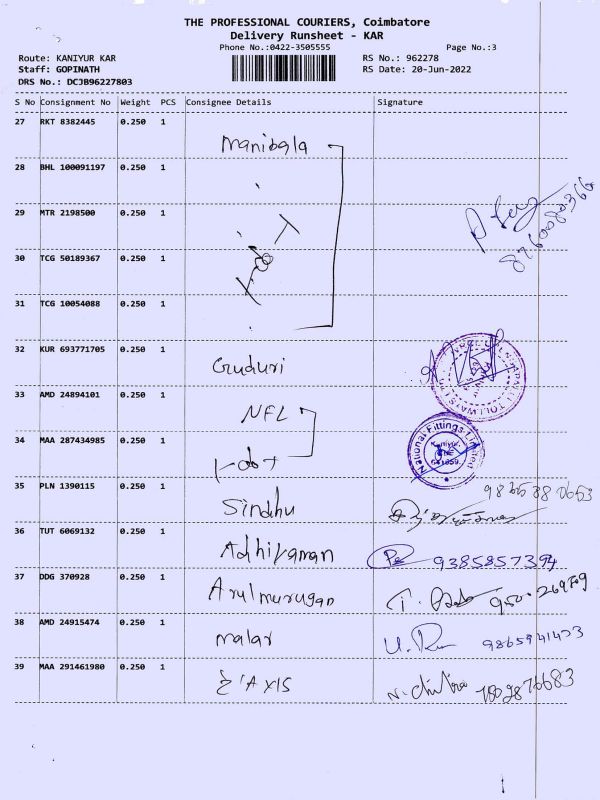 THE PROFESSIONAL COURIERS, Coimbatore
Delivery Runsheet - KAR
Phone No.:0422-3505555 Page No.:3
Route: KANIYUR KAR RS No.: 962278
Staff: GOPINATH RS Date: 20-Jun-2022
DRS No.: DCJB96227803
S No Consignment No Weight PCS Consignee Details Signature
27 RKT 8382445 0.250 1 Manibala
28 BHL 100091197 0.250 1
29 MTR 2198500 0.250 1
30 TCG 50189367 0.250 1
31 TCG 10054088 0.250 1
32 KUR 693771705 0.250 1 Guduri
33 AMD 24894101 0.250 1 NFL
34 MAA 287434985 0.250 1
National Fittings Limited
35 PLN 1390115 0.250 1 Sindhu
36 TUT 6069132 0.250 1 Adhiyaman 9385857394
37 DDG 370928 0.250 1 Arulmurugan
38 AMD 24915474 0.250 1 malar
39 MAA 291461980 0.250 1 AXIS